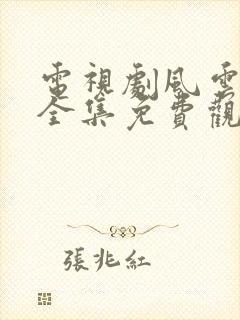 電視劇風雲
全集免費觀
張兆紅